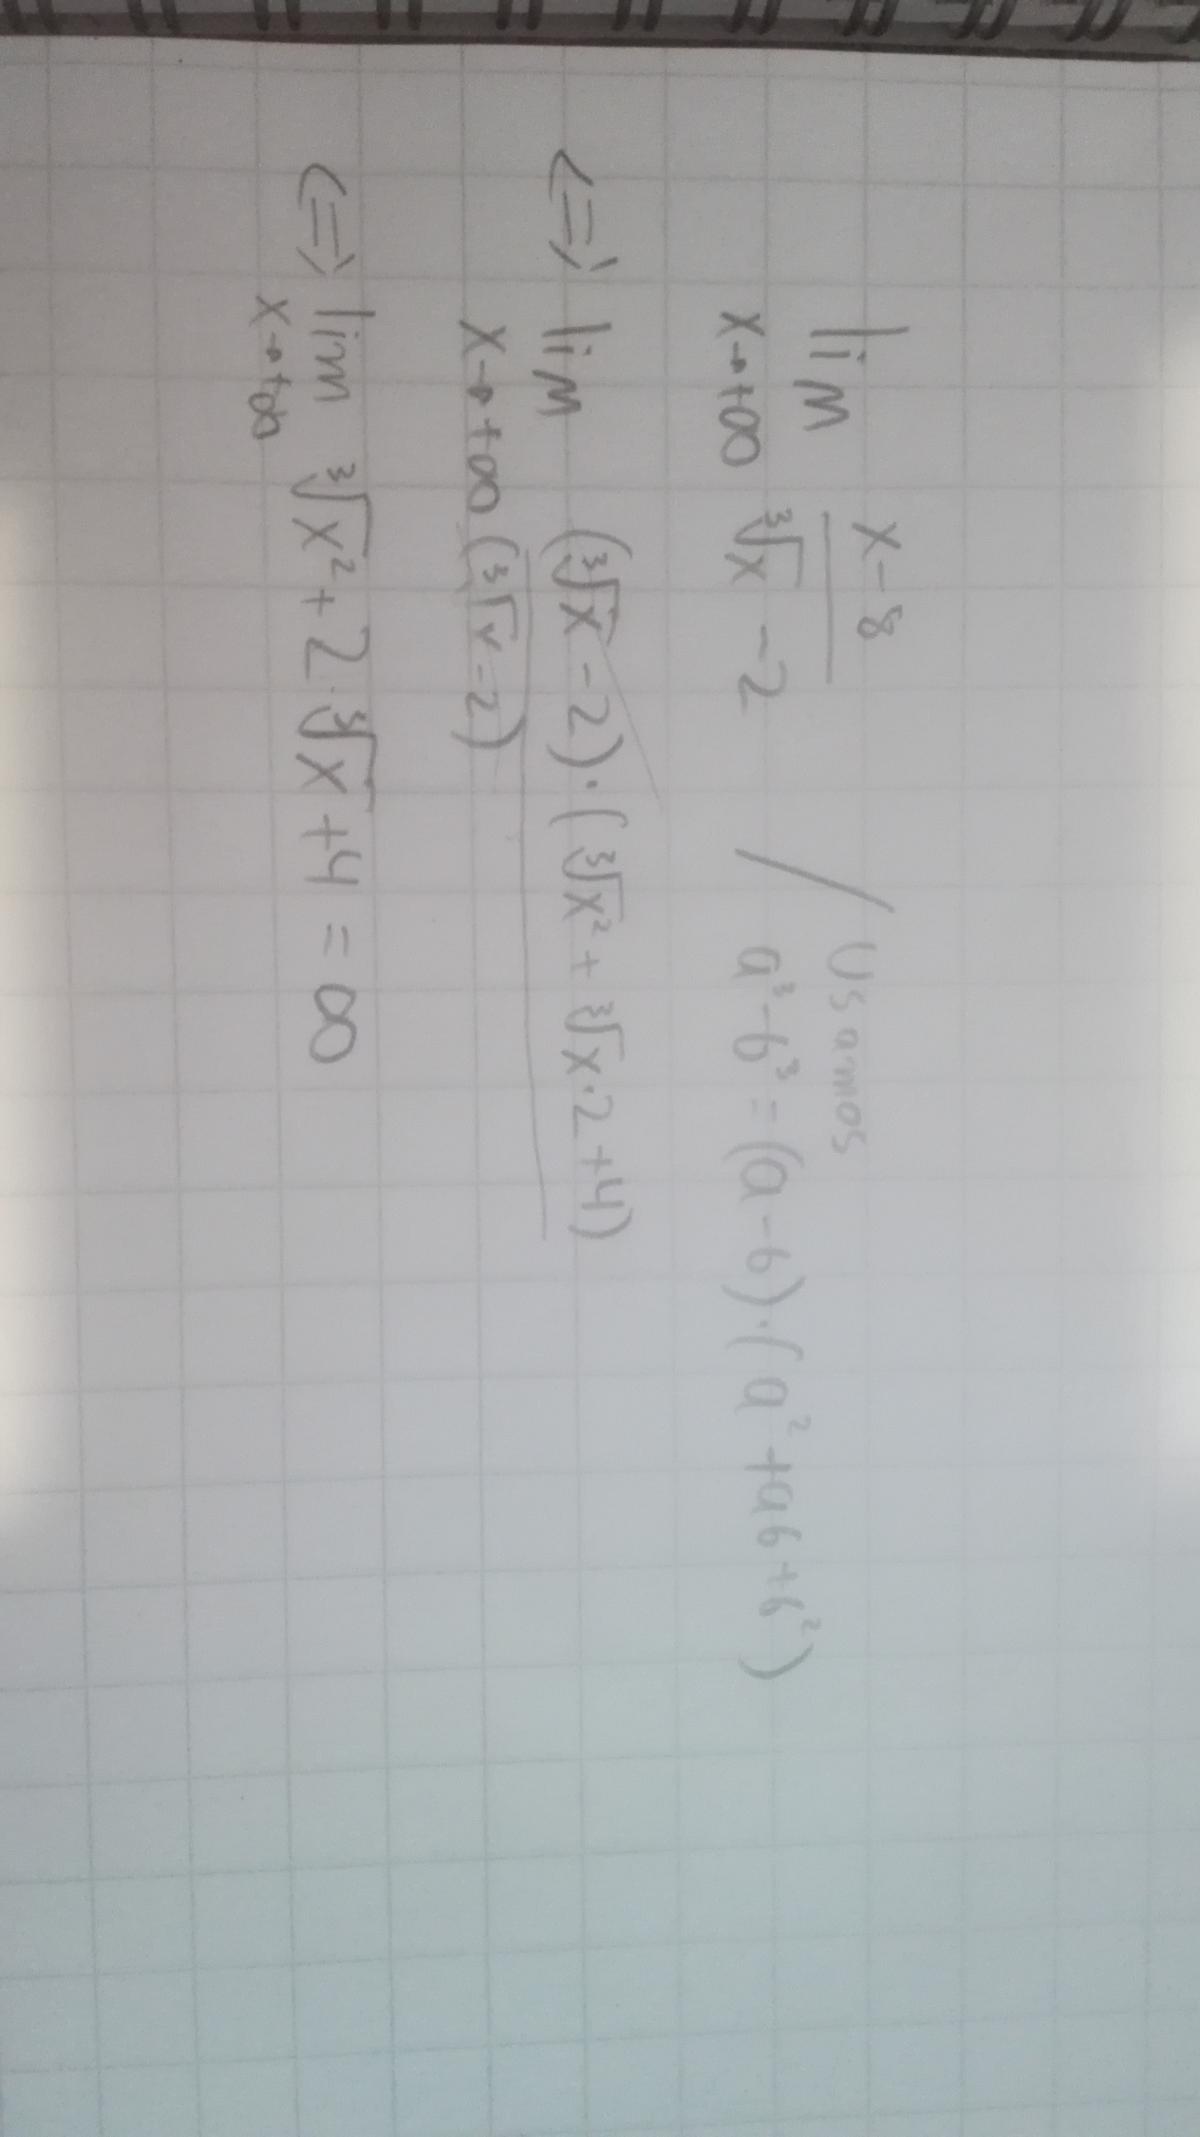 lim x→+∞ (x-8)/(∛x -2) / Usamos a³-b³=(a-b)·(a²+ab+b²)
<=> lim x→+∞ ((∛x -2)·(∛x² + ∛x·2+4))/(∛x-2)
<=> lim x→+∞ ∛x² + 2·∛x +4 = ∞